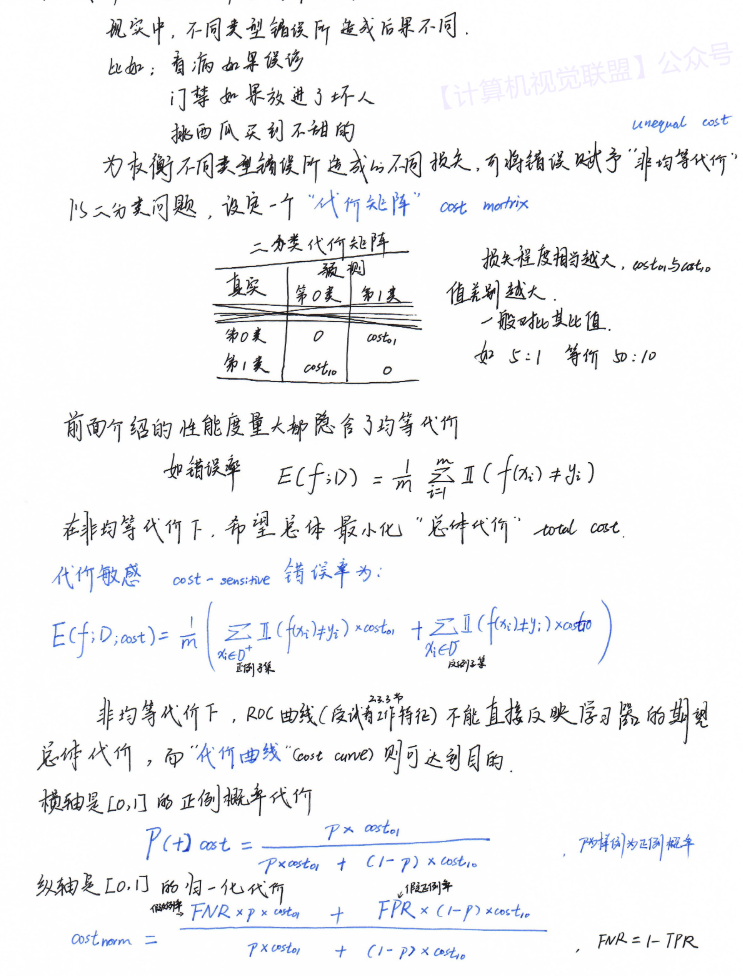 现实中，不同类型错误所造成后果不同．
比如：看病如果误诊
门禁如果放进了坏人
挑西瓜买到不甜的
【计算机视觉联盟】公众号
unequal cost
为权衡不同类型错误所造成的不同损失，可将错误赋予“非均等代价”
以二分类问题，设定一个“代价矩阵” cost matrix
二分类代价矩阵
真实 预测
第0类 第1类
第0类 0 cost₀₁
第1类 cost₁₀ 0
损失程度相当越大，cost₀₁与cost₁₀
值差别越大．
一般对比其比值．
如 5:1 等价 50:10
前面介绍的性能度量大都隐含了均等代价
如错误率 E(f;D) = 1/m ∑ᵢ₌₁ᵐ 𝕀(f(xᵢ)≠yᵢ)
在非均等代价下．希望总体最小化“总体代价” total cost.
代价敏感 cost-sensitive 错误率为：
E(f;D;cost) = 1/m ( ∑ xᵢ∈D⁺ 𝕀(f(xᵢ)≠yᵢ)×cost₀₁ + ∑ xᵢ∈D⁻ 𝕀(f(xᵢ)≠yᵢ)×cost₁₀ )
正例子集 反例子集
2.3.3节
非均等代价下，ROC曲线(受试者工作特征)不能直接反映学习器的期望
总体代价，而“代价曲线”(cost curve)则可达到目的．
横轴是[0,1]的正例概率代价
P(+)cost = p×cost₀₁ / (p×cost₀₁ + (1-p)×cost₁₀) ，p为样例为正例概率
纵轴是[0,1]的归一化代价
假反例率 假正例率
costnorm = (FNR×p×cost₀₁ + FPR×(1-p)×cost₁₀) / (p×cost₀₁ + (1-p)×cost₁₀) ，FNR=1-TPR